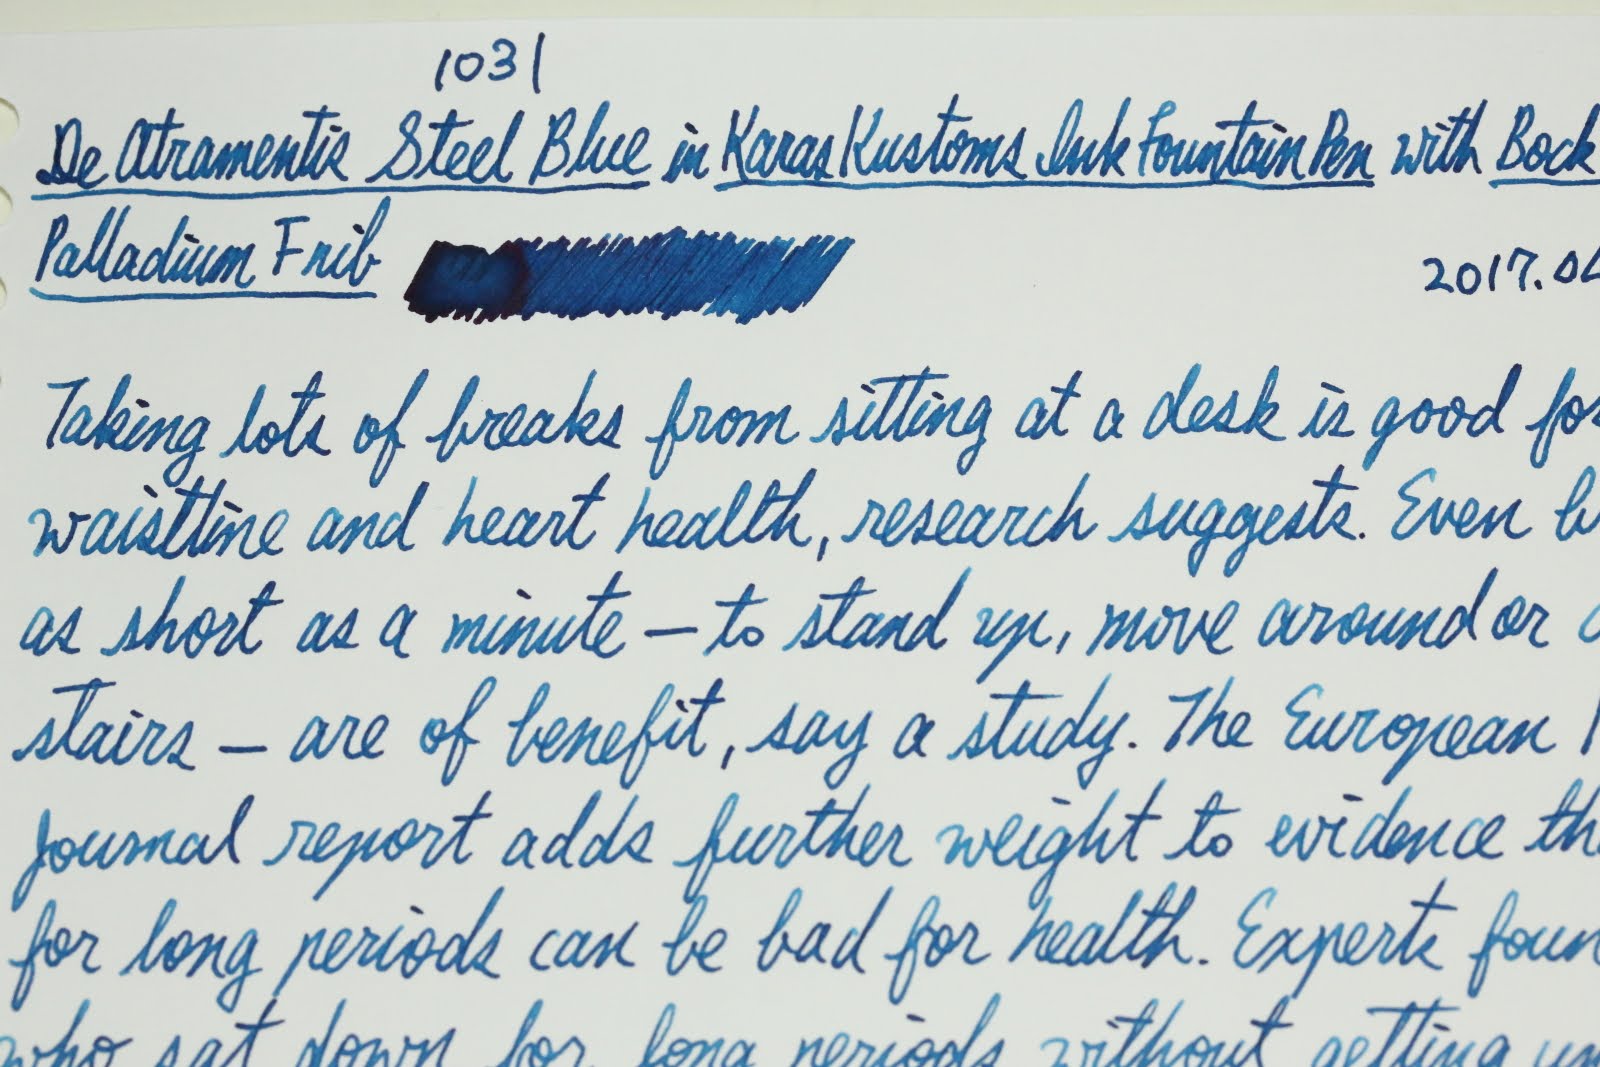 1031
De Atramentis Steel Blue in Karas Kustoms Ink Fountain Pen with Bock
Palladium F nib
2017.04
Taking lots of breaks from sitting at a desk is good for
waistline and heart health, research suggests. Even
as short as a minute – to stand up, move around or
stairs – are of benefit, say a study. The European
Journal report adds further weight to evidence
for long periods can be bad for health. Experts
who sat down for long periods without getting